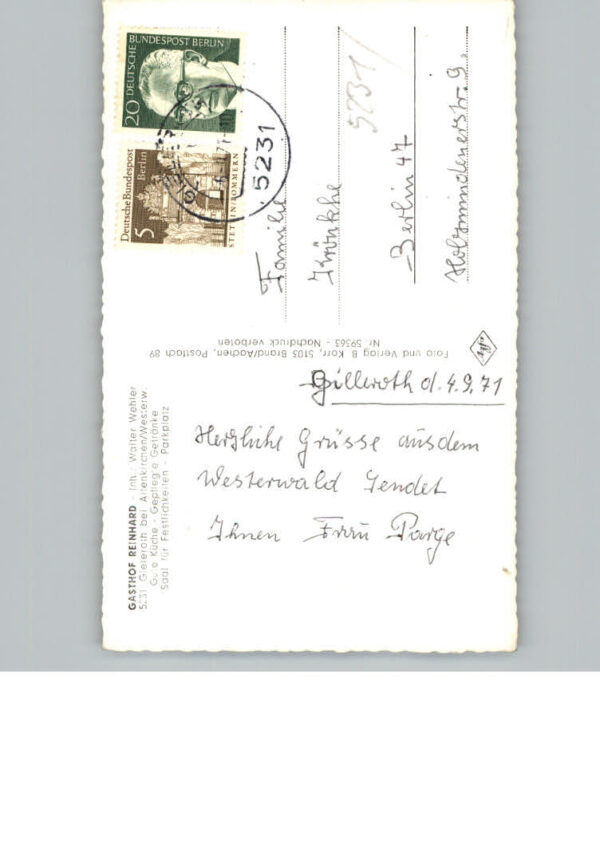 GASTHOF REINHARD - Inh.: Walter Wehler
5231 Gieleroth bei Altenkirchen/Westerw.
Gute Küche - Gepflegte Getränke
Saal für Festlichkeiten - Parkplatz
Gilleroth d. 4.9.71
Herzliche Grüsse aus dem
Westerwald Sendet
Ihnen Frau Parge
Foto und Verlag B. Korr, 5105 Brand/Aachen, Postfach 89
Nr. 59363 - Nachdruck verboten
DEUTSCHE BUNDESPOST BERLIN
20
Deutsche Bundespost
Berlin
5
STETTIN/POMMERN
5231
5231
Familie
Krönkhe
Berlin 47
Holzmindenerstr. 9.